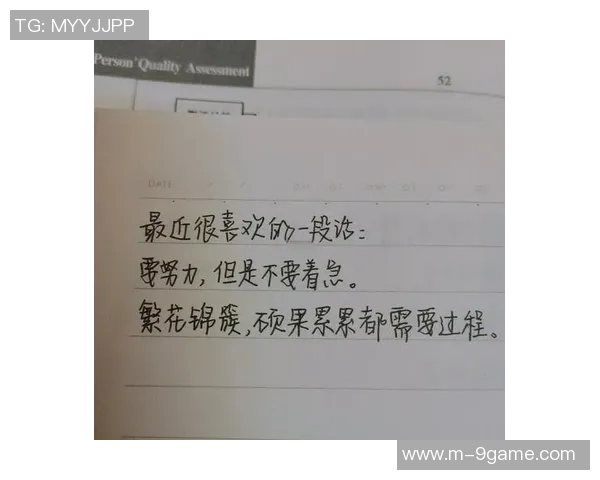 TG: MYYJJPP
Person' Quality Assessment
52
DATE
最近很喜欢的一段话：
要努力，但是不要着急。
繁花锦簇，硕果累累都需要过程。
www.m-9game.com